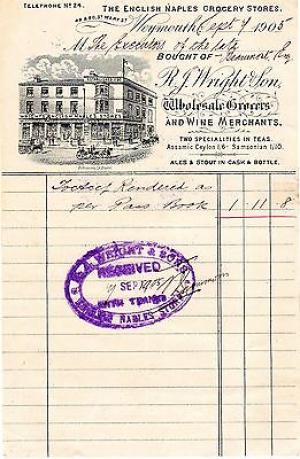 TELEPHONE No 24.
THE ENGLISH NAPLES GROCERY STORES,
Weymouth Sept 7 1905
M The Executors of the late
BOUGHT OF
R. J. Wright & Son,
Wholesale Grocers
AND WINE MERCHANTS.
TWO SPECIALITIES IN TEAS.
Assamic Ceylon 1/6 Samsonian 1/10.
ALES & STOUT IN CASK & BOTTLE.
Rendered as
per Pass Book 1-11-8
WRIGHT & SONS
RECEIVED
9 SEP 1905
WITH THANKS
ENGLISH NAPLES STORES